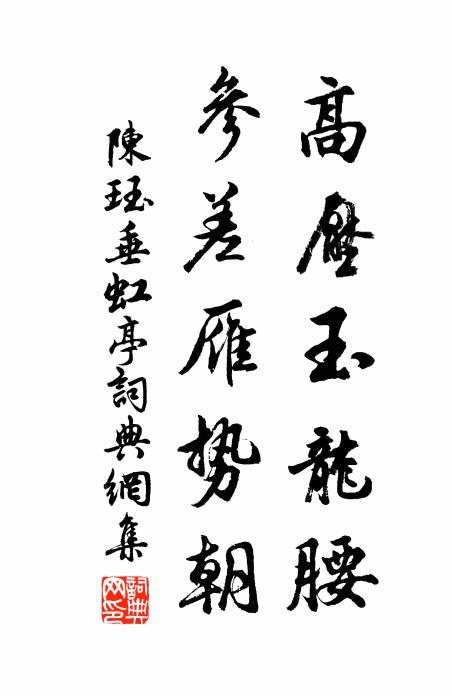 高壓玉龍腰
參差雁勢朝
陳珏垂虹亭詞典網集
詞典网印